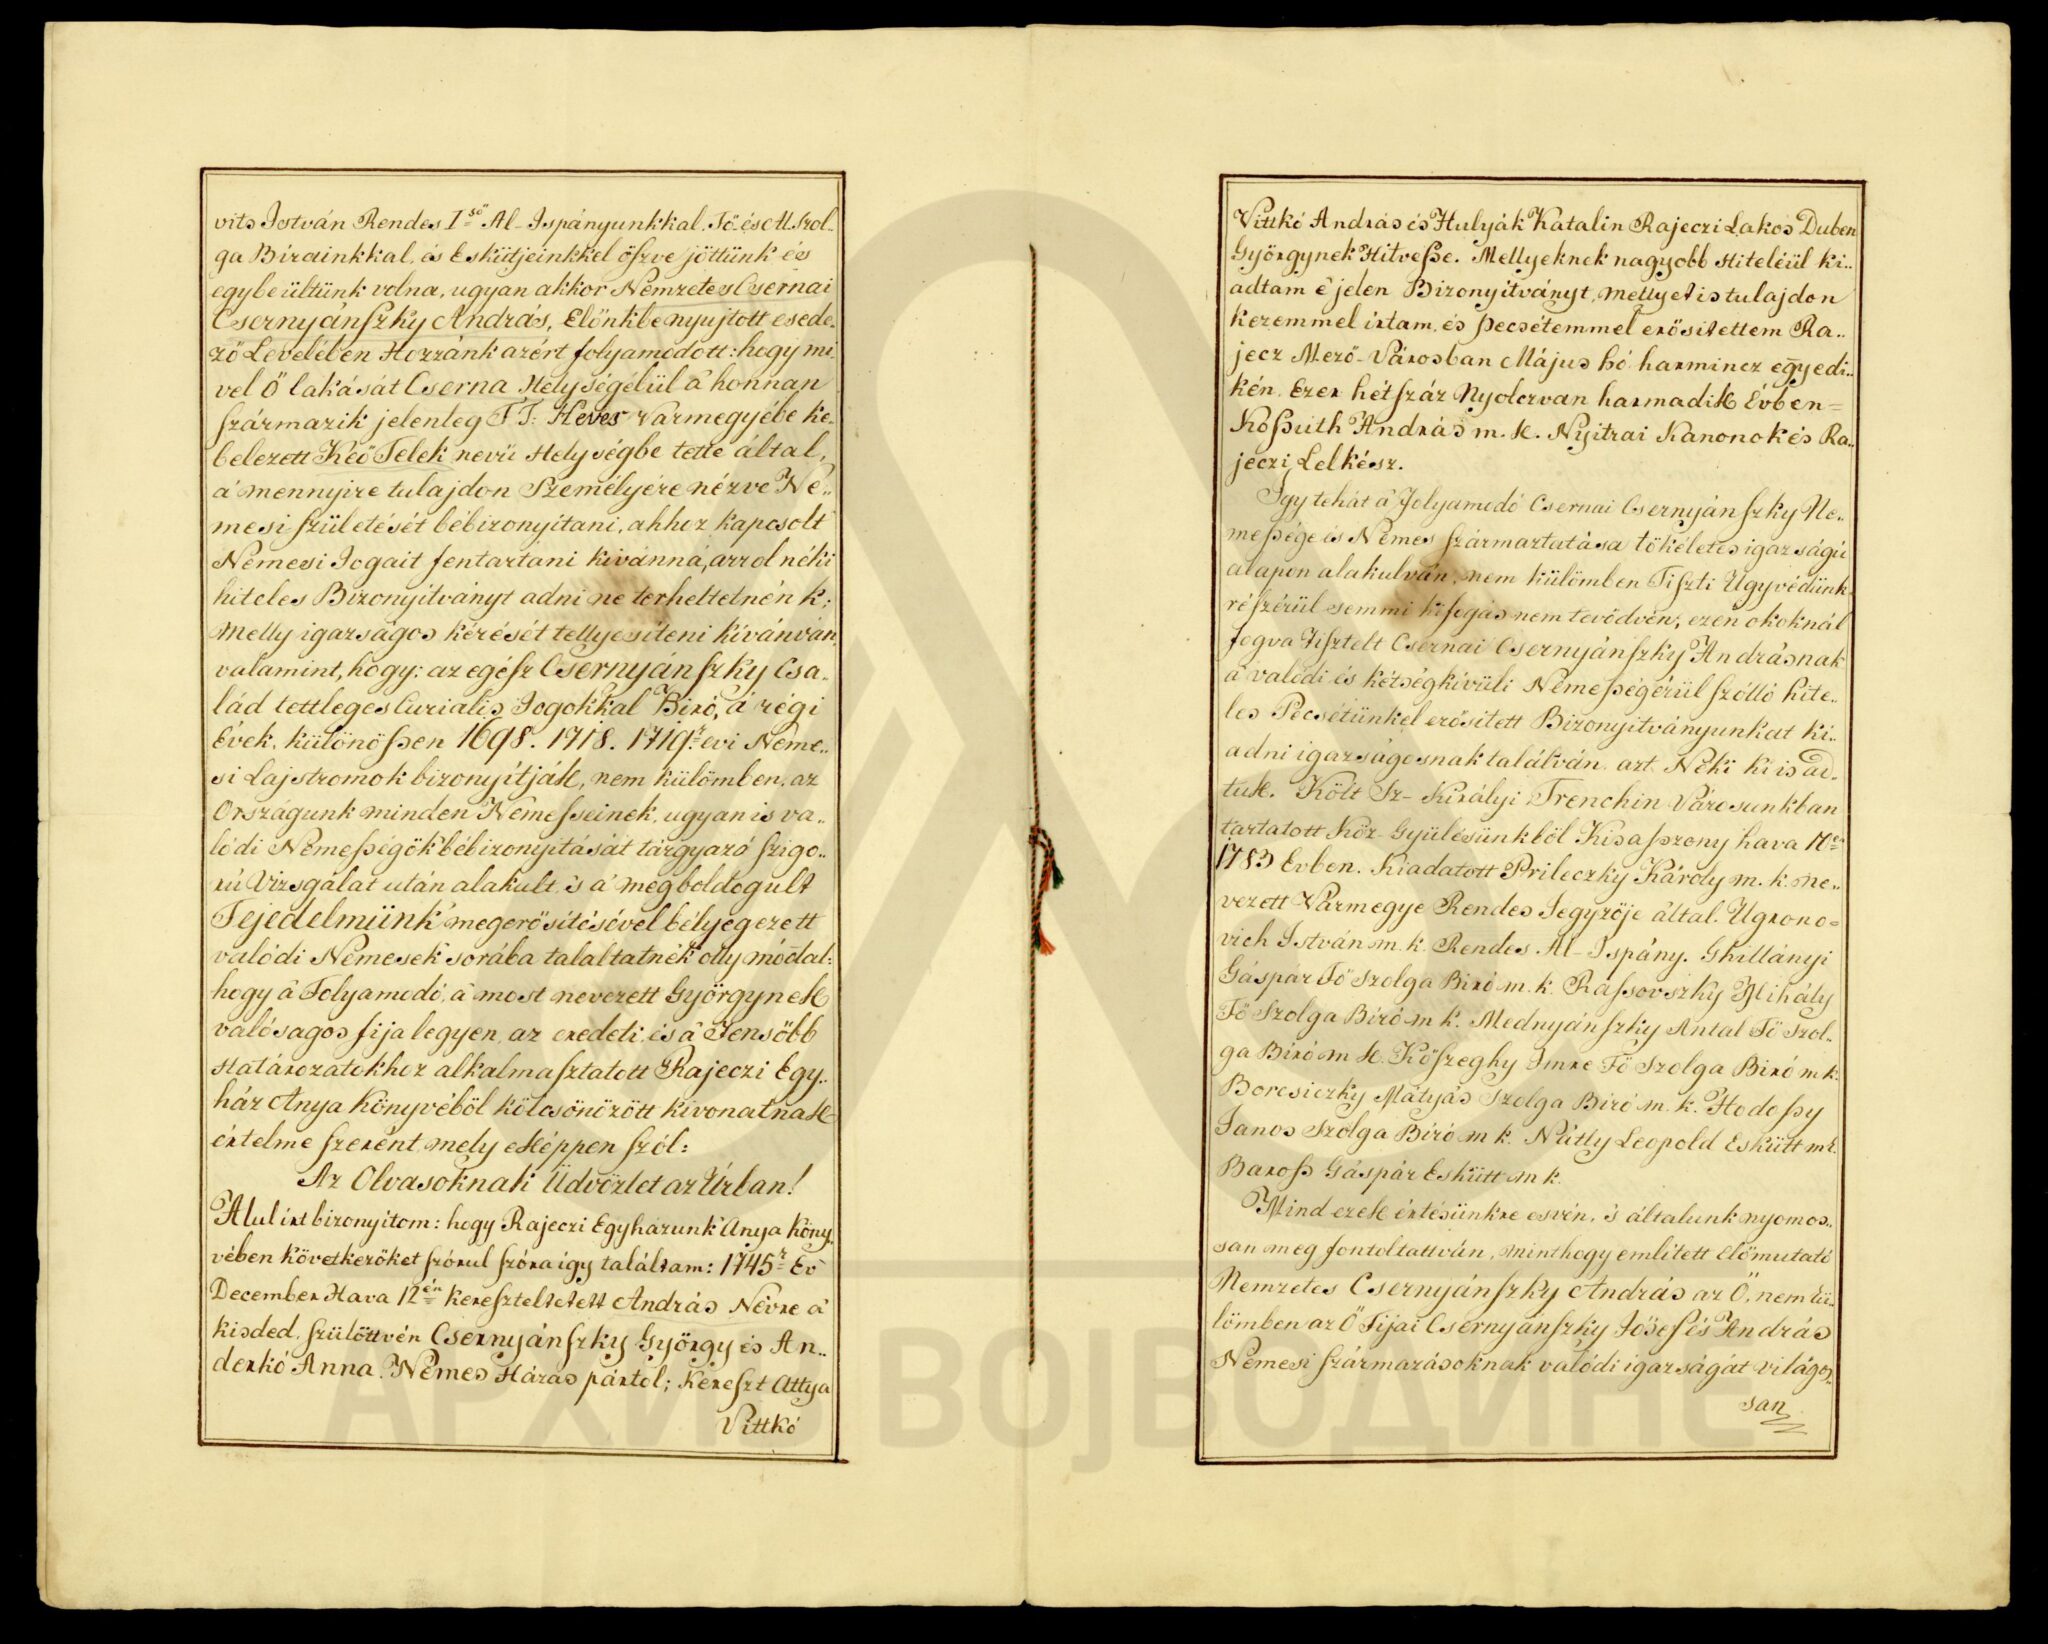 vits István Rendes I<sup>ső</sup> Al-Ispányunkkal, Fő- és Al Szol-
ga Biráinkkal, és Esküttjeinkkel öszve jöttünk és
egybe ültünk volna, ugyan akkor Nemzetes Csernai
Csernyánszky András, Előnkbe nyujtott esede-
ző Levelében Hozzánk azért folyamodott: hogy mi
vel Ő lakását Cserna Helységéűl a' honnan
származik jelenleg T T: Heves Vármegyébe ke-
belezett Keő Telek nevű Helységbe tette által,
a' mennyire tulajdon Személyére nézve Ne-
mesi születését bébizonyítani, ahhoz kapcsolt
Nemesi Jogait fentartani kivánná, arrol néki
hiteles Bizonyítványt adni ne terheltetnénk;
Melly igazságos kérését tellyesíteni kívánván,
valamint, hogy: az egész Csernyánszky Csa-
lád tettleges Curialis Jogokkal Biró, a' régi
Évek, különössen 1698. 1718. 1719<sup>r</sup> evi Neme-
si Lajstromok bizonyítják, nem külömben, az
Országunk minden Nemesseinek, ugyan is va-
lódi Nemességök bébizonyitását tárgyazó szigo-
rú Vizsgálat után alakult, 's a' megboldogult
Fejedelmünk megerősítésével bélyegezett
valódi Nemesek sorába találtatnék olly módal:
hogy a' Folyamodó, a' most nevezett Györgynek
valóságos fija legyen, az eredeti, és a' Fensőbb
Határozatokhoz alkalmasztatott Rajeczi Egy-
ház Anya Könyvéből kölcsönözött kivonatnak
értelme szerént, mely eképpen szól:
Az Olvasoknak Üdvözlet az Úrban!
Alulírt bizonyítom: hogy Rajeczi Egyházunk Anya Köny-
vében következőket szórul szóra így találtam: 1745<sup>r</sup> Ev
December Hava 12<sup>én</sup> kereszteltetett András Névre a'
kisded, szülöttvén Csernyánszky György és An-
derkó Anna Nemes Házas pártol; Kereszt Attya
Vittkó
Vittkó András és Hulyák Katalin Rajeczi Lakos Duben
Györgynek Hitvesse. Mellyeknek nagyobb Hiteléül ki-
adtam e' jelen Bizonyítványt, mellyet is tulajdon
kezemmel irtam, és pecsétemmel erősitettem Ra-
jecz Mező-Városban Május hó harmincz egyedi-
kén Ezer hétszáz Nyolczvan harmadik Évben=
Kossuth András m. k. Nyitrai Kanonok és Ra-
jeczi Lelkész.
Igy tehát a' Folyamodó Csernai Csernyánszky Ne-
messége és Nemes származtatása tökéletes igazságú
alapon alakulván, nem külömben Tiszti Ügyvédünk
részérül semmi kifogás nem tevődvén, ezen okoknál
fogva Tisztelt Csernai Csernyánszky Andrásnak
a' valódi és kétségkívüli Nemességérül szólló hite-
les Pecsétünkel erősitett Bizonyitványunkat ki-
adni igazságosnak találván, azt Néki ki is ad-
tuk. Költ Sz- Királyi Trenchin Városunkban
tartatott Köz-Gyülésünkből Kisasszony hava 17<sup>én</sup>
1783 Evben. Kiadatott Prileczky Károly m. k. ne-
vezett Vármegye Rendes Jegyzője által. Ugrono-
vich István m. k. Rendes Al-Ispány. Ghillányi
Gáspár Fő Szolga Biró m. k. Rassovszky Mihály
Fő Szolga Biró m k. Mednyánszky Antal Fő Szol-
ga Biró m k. Kőszeghy Imre Fő Szolga Biró m k.
Borcsiczky Mátyás Szolga Biró m. k. Hodossy
Janos Szolga Biró m k. Nátly Leopold Eskütt m k.
Baross Gáspár Eskütt m k.
Mind ezek értésünkre esvén, 's általunk nyomos-
san meg fontoltattván, minthogy említett Előmutató
Nemzetes Csernyánszky András az Ő, nem kü-
lömben az Ő Fijai Csernyánszky Jósef és András
Nemesi származásoknak valódi igazságát világos-
san
АРХИВ ВОЈВОДИНЕ